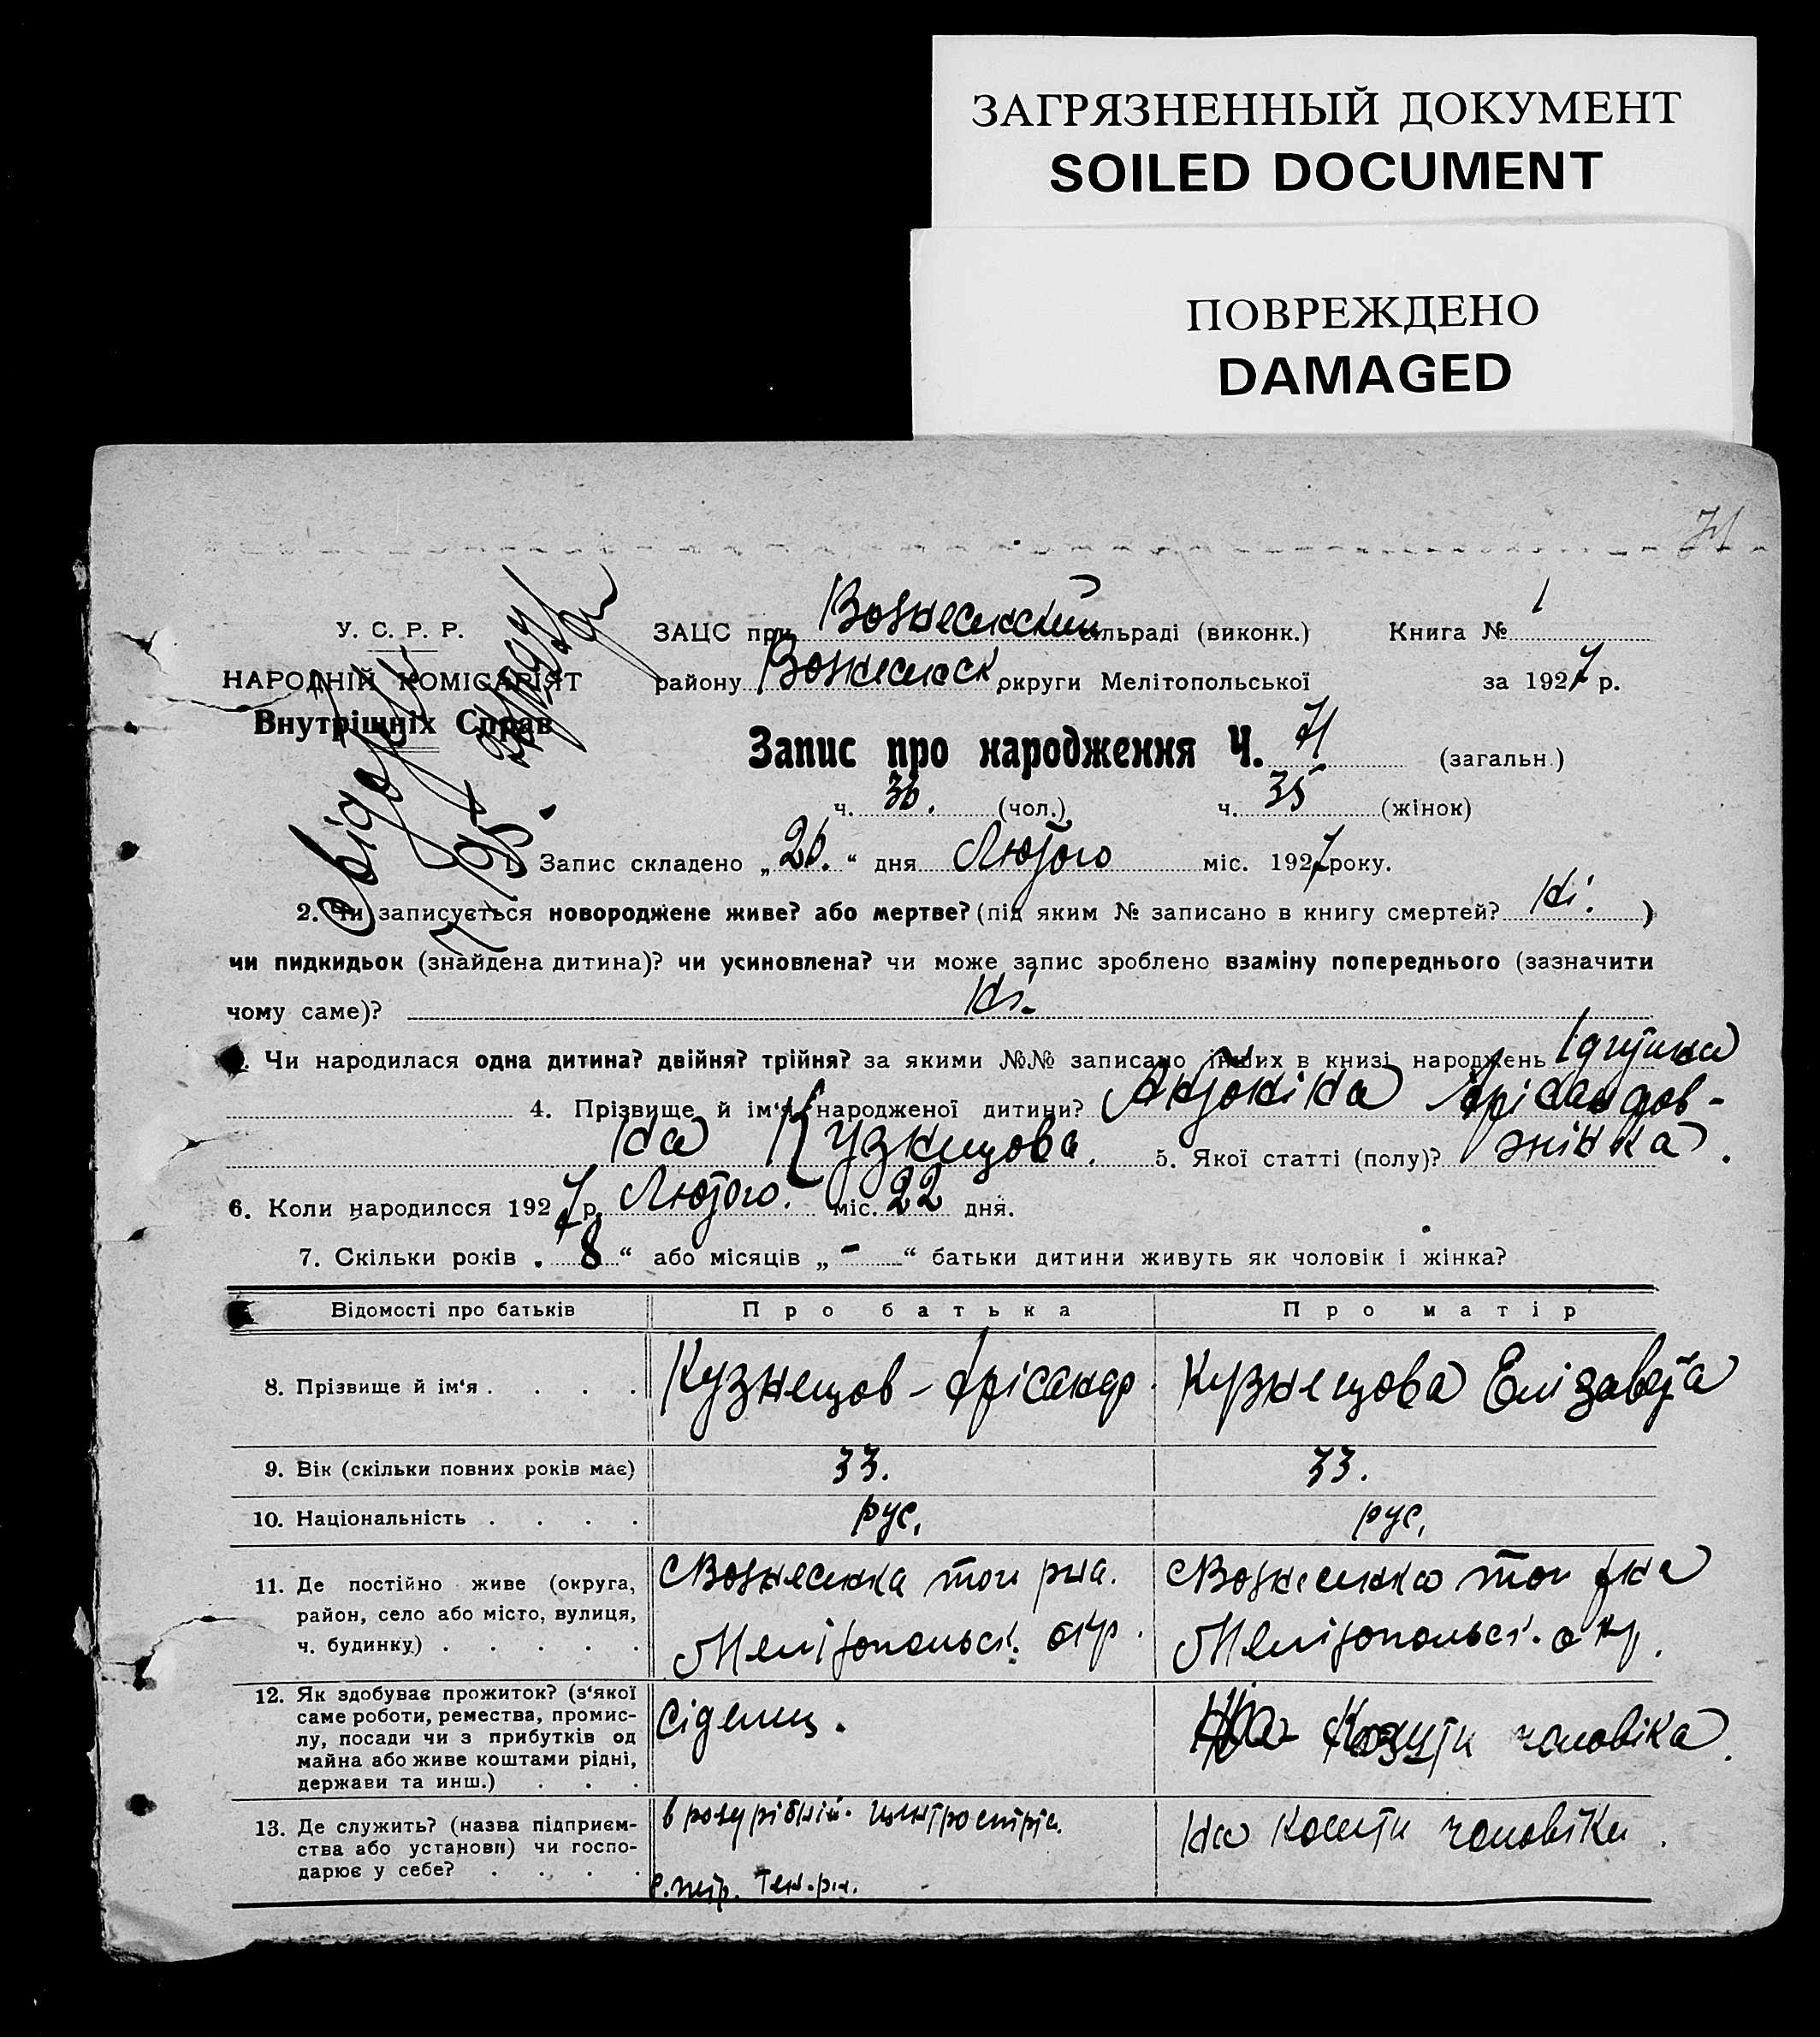 ЗАГРЯЗНЕННЫЙ ДОКУМЕНТ
SOILED DOCUMENT
ПОВРЕЖДЕНО
DAMAGED
71
У. С. Р. Р.
НАРОДНІЙ КОМІСАРІЯТ
Внутрішніх Справ
ЗАЦС при Вознесенский сільраді (виконк.) Книга № 1
району Вознесенск округи Мелітопольської за 1927 р.
Запис про народження Ч. 71 (загальн.)
ч. 36. (чол.) ч. 35 (жінок)
1. Запис складено „26.“ дня Лютого міс. 1927 року.
2. Чи записується новороджене живе? або мертве? (під яким № записано в книгу смертей? Ні. )
чи пидкидьок (знайдена дитина)? чи усиновлена? чи може запис зроблено взаміну попереднього (зазначити
чому саме)? Ні.
Чи народилася одна дитина? двійня? трійня? за якими №№ записано інших в книзі народжень
4. Прізвище й ім'я народженої дитини? Антоніна
Кузнецова. 5. Якої статті (полу)? жінка.
6. Коли народилося 1927 р. Лютого. міс. 22 дня.
7. Скільки років „8“ або місяців „-“ батьки дитини живуть як чоловік і жінка?
Відомості про батьків Про батька Про матір
8. Прізвище й ім'я . . . . Кузнецов - Кузнецова Елізавета
9. Вік (скільки повних років має) 33. 33.
10. Національність . . . . рус. рус.
11. Де постійно живе (округа, район, село або місто, вулиця, ч. будинку) . . . . .
с Вознесенка того рна. Мелітопольськ. окр.
с Вознесенка того рна Мелітопольск. окр.
12. Як здобуває прожиток? (з'якої
саме роботи, ремества, промис-
лу, посади чи з прибутків од
майна або живе коштами рідні,
держави та инш.) . . .
чоловіка.
13. Де служить? (назва підприєм-
ства або установи) чи госпо-
дарює у себе? . . . .
На кошти чоловіка.